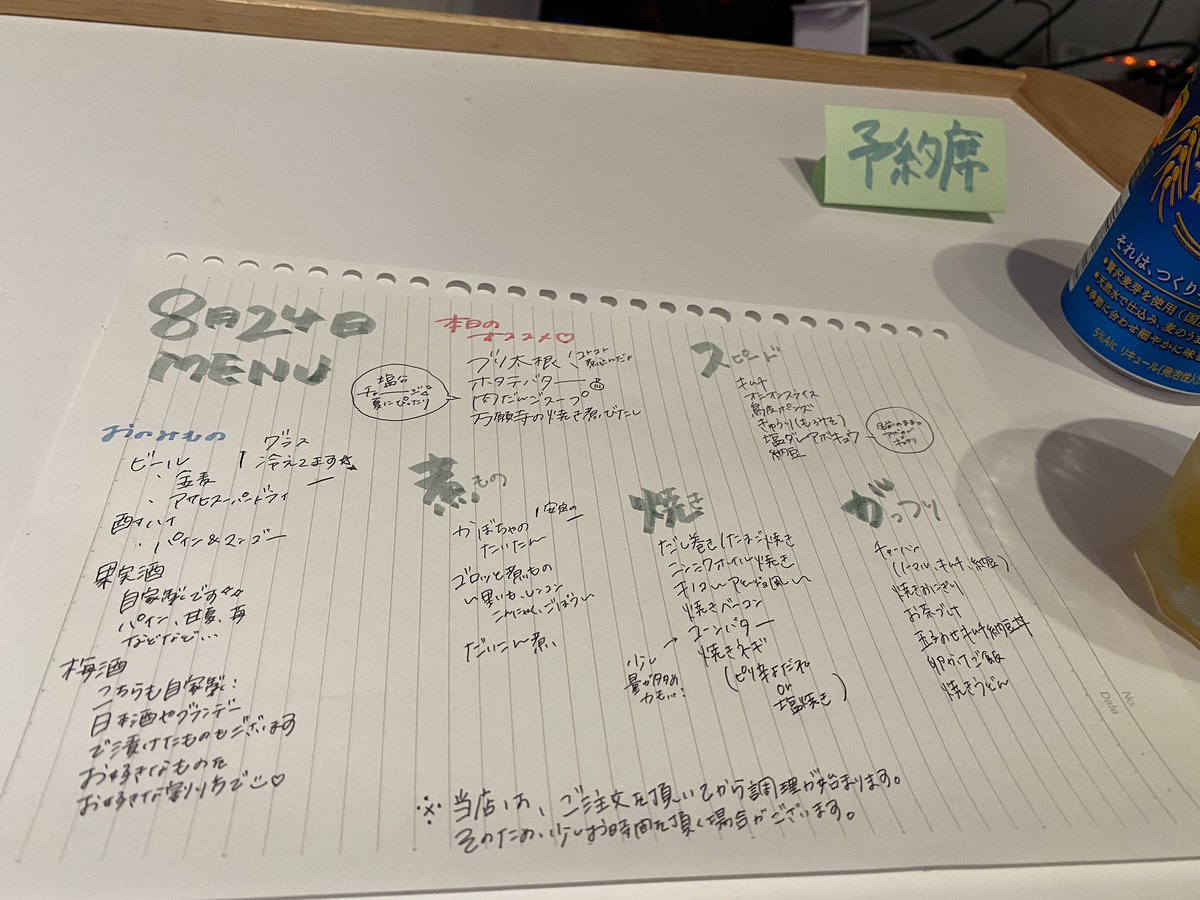 予約席
それは、つくり
●贅沢麦芽を使用(国
●天然水で仕込み、麦のう
●季節に合わせ細やかに味
5%Alc. リキュール(発泡性)
8月24日
MENU
おのみもの
ビール
グラス
冷えてます☆
・金麦
・アサヒスーパードライ
酎ハイ
・パイン&マンゴー
果実酒
自家製です☆☆
パイン、甘夏、苺
などなど…
梅酒
こちらも自家製!
日本酒やブランデー
で漬けたものもございます
お好きなものを
お好きな割り方で♡
本日の
オススメ♡
ブリ大根
コトコト
煮込んだよ
ホタテバター
肉だんごスープ
塩分
チャージ☆
夏にぴったり
万願寺の焼き煮びたし
スピード
キムチ
オニオンスライス
鳥皮ポンズ
きゅうり(もろみそ)
塩ダレアボキュウ
納豆
名前のまま。
アボカド
きゅうり
煮もの
かぼちゃの
たいたん
安定の
ゴロッと煮もの
〜里いも、レンコン
こんにゃく、ごぼう〜
だいこん煮
焼き
だし巻き/たまご焼き
ニンニクホイル焼き
キノコ〜アヒージョ風〜
焼きベーコン
コーンバター
焼きネギ
(ピリ辛よだれ
or
塩焼き)
少し
量が多め
カモ…!
がっつり
チャーハン
(ノーマル、キムチ、納豆)
焼きおにぎり
お茶づけ
玉子のせキムチ納豆丼
卵かけご飯
焼きうどん
No.
Date
※当店は、ご注文を頂いてから調理が始まります。
そのため、少しお時間を頂く場合がございます。